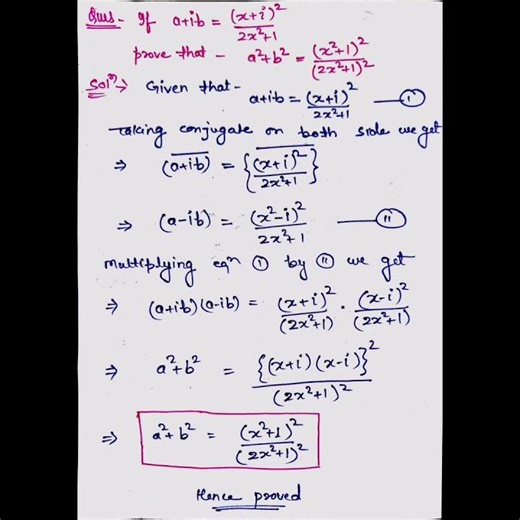 Ques- If a+ib = (x+i)²/2x²+1
prove that - a²+b² = (x²+1)²/(2x²+1)²
Solⁿ→ Given that-
a+ib = (x+i)²/2x²+1 —— (I)
Taking conjugate on both side we get
⇒ \overline{(a+ib)} = \overline{{(x+i)²/2x²+1}}
⇒ (a-ib) = (x²-i)²/2x²+1 —— (II)
Multiplying eqⁿ (I) by (II) we get
⇒ (a+ib)(a-ib) = (x+i)²/(2x²+1) . (x-i)²/(2x²+1)
⇒ a²+b² = {(x+i)(x-i)}²/(2x²+1)²
⇒ a²+b² = (x²+1)²/(2x²+1)²
Hence proved